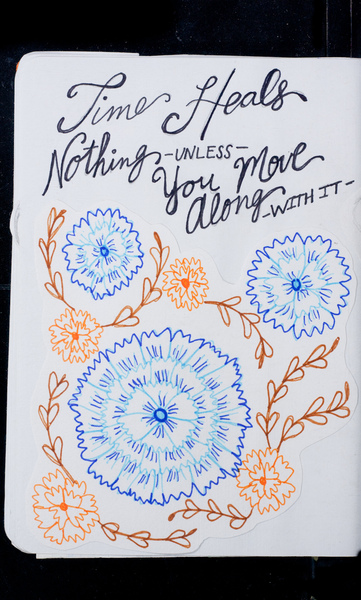 Time Heals
Nothing -UNLESS-
You Move
Along -WITH IT-